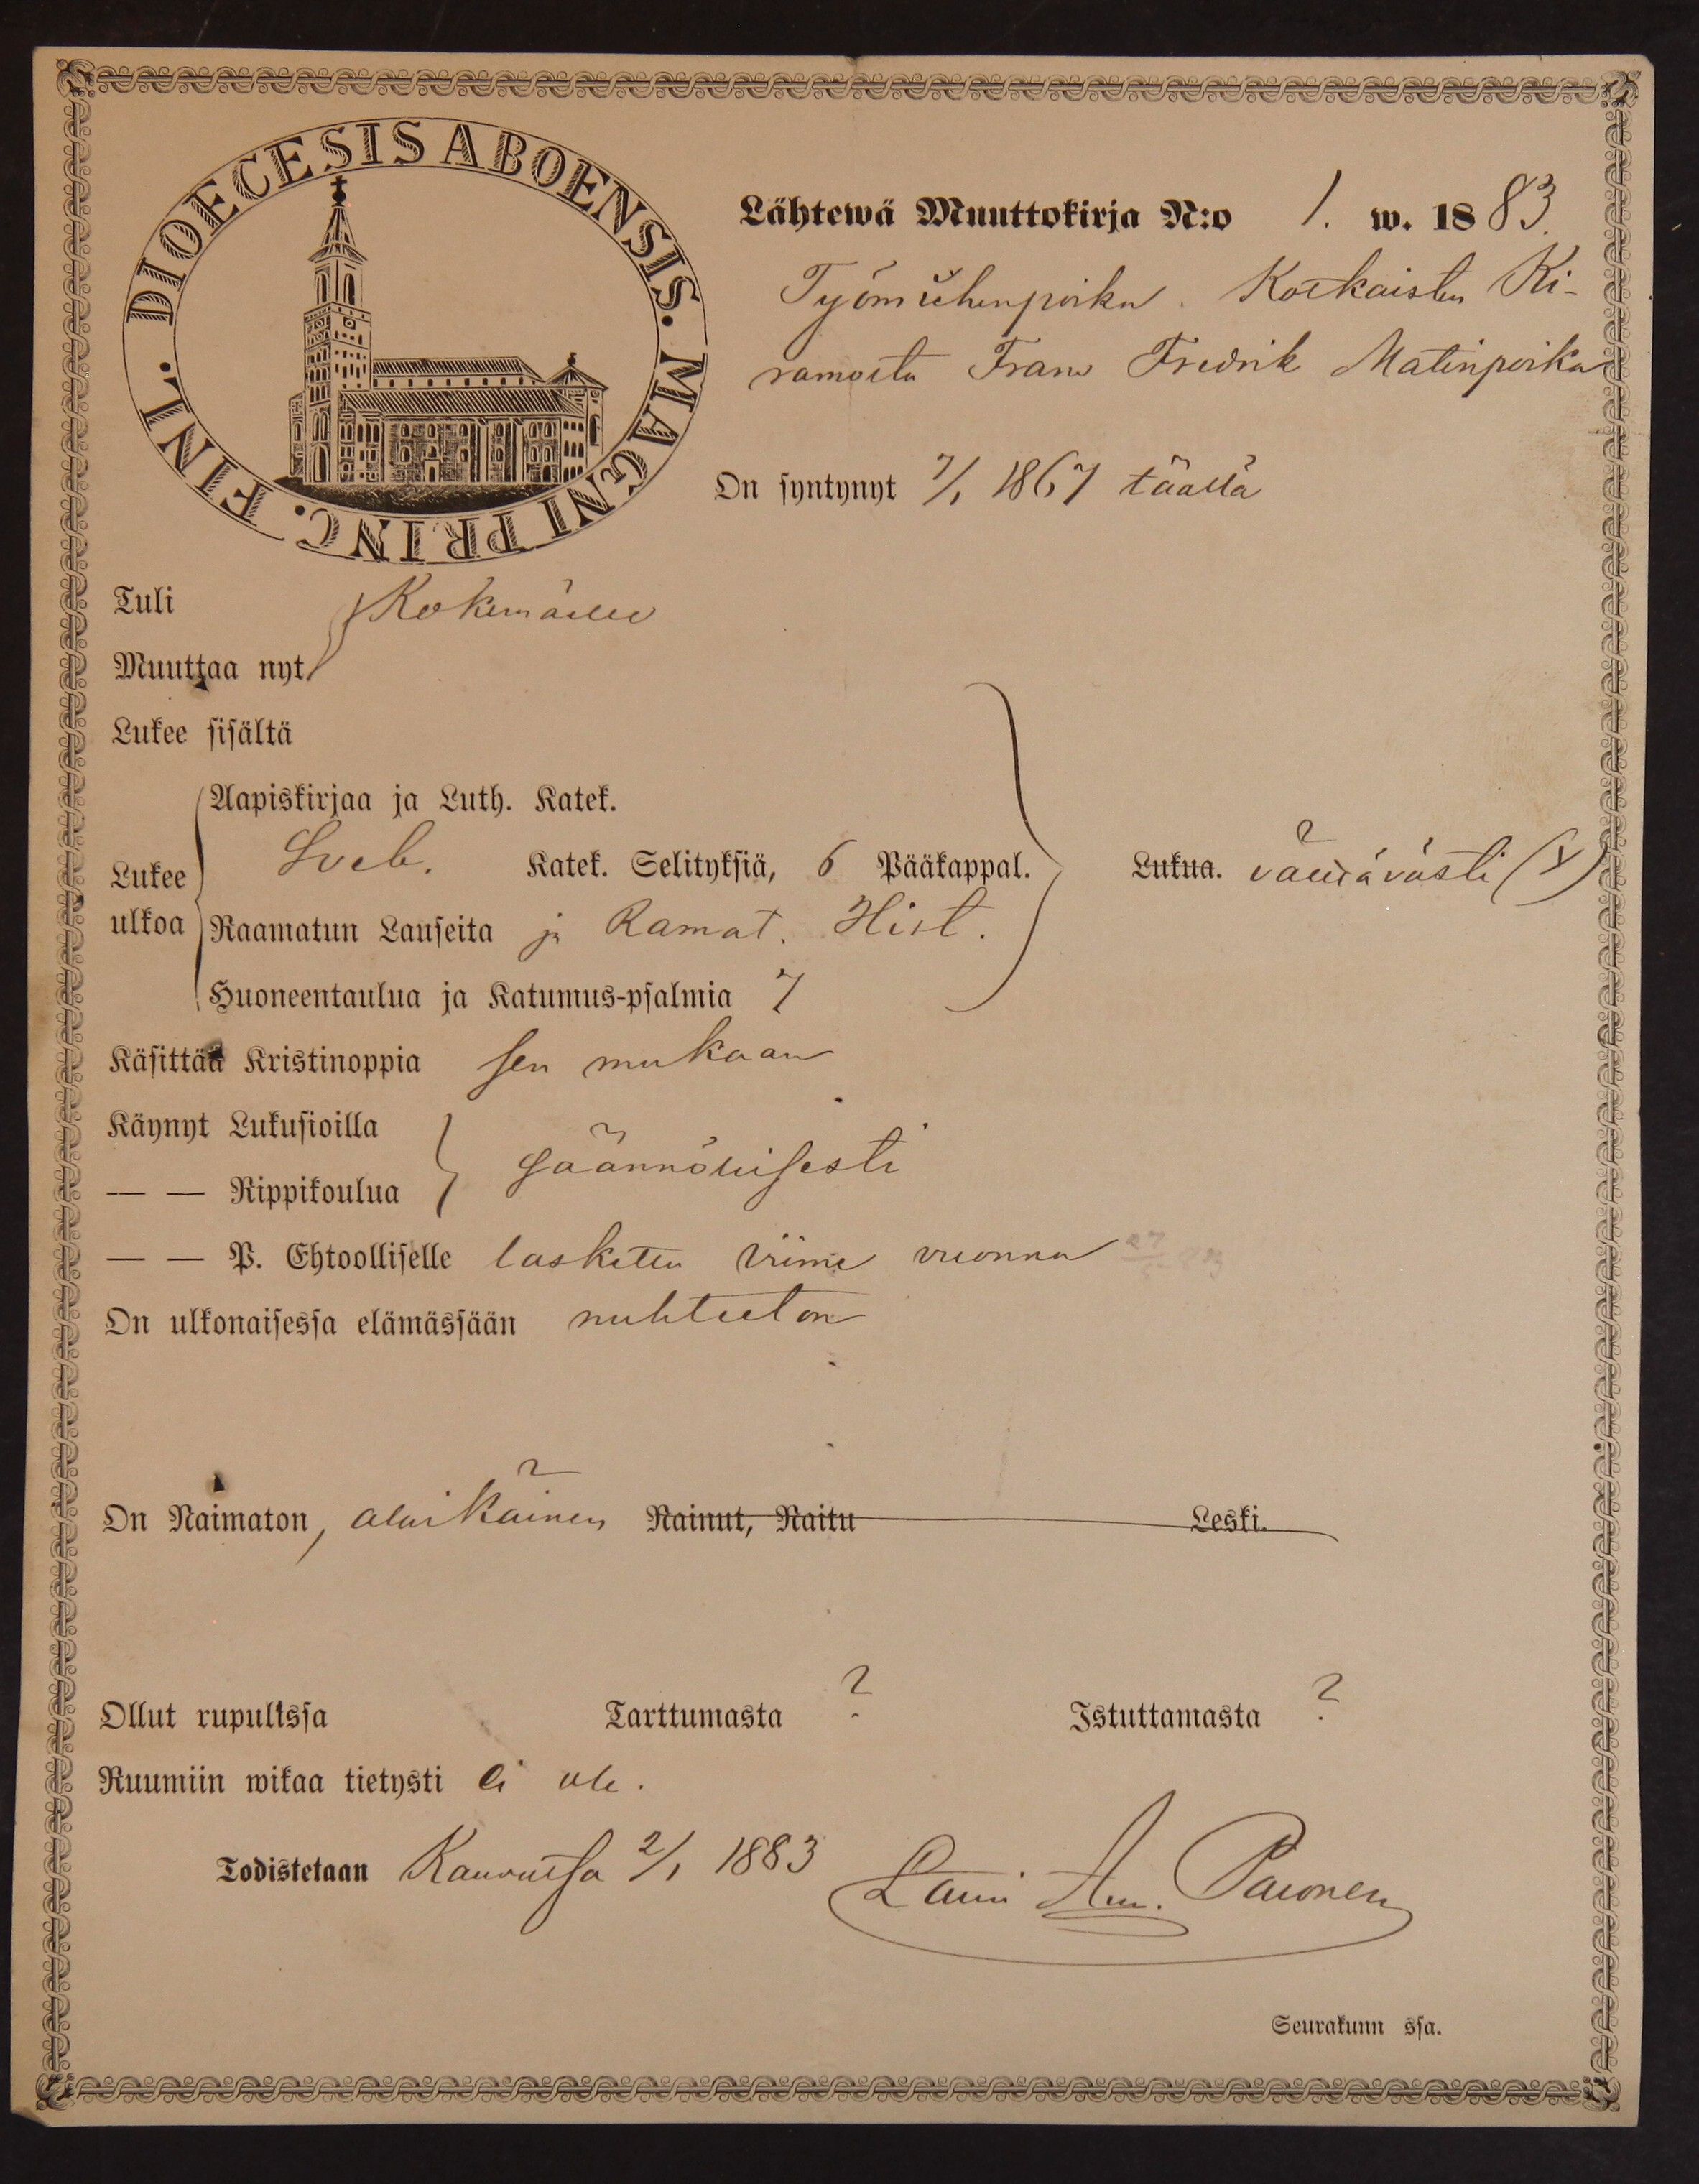 DIOECESIS ABOENSIS. MAGNI PRINC. FINL.
Lähtewä Muuttokirja N:o 1. w. 1883.
Työmiehenpoika. Korkaisten Ki-
ramosta Frans Fredrik Matinpoika
On syntynyt 7/1 1867 täällä
Tuli
Kokemäelle
Muuttaa nyt
Lukee sisältä
Aapiskirjaa ja Luth. Katek.
Lukee ulkoa
Sveb. Katek. Selityksiä, 6 Pääkappal.
Lukua. välttävästi (Y)
Raamatun Lauseita ja Ramat. Hist.
Huoneentaulua ja Katumus-psalmia 7
Käsittää Kristinoppia sen mukaan
Käynyt Lukusioilla
säännöllisesti
— — Rippikoulua
— — P. Ehtoolliselle laskettu viime vuonna
On ulkonaisessa elämässään nuhteeton
On Naimaton, alaikäinen Nainut, Naitu Leski.
Ollut rupulissa Tarttumasta ? Istuttamasta ?
Ruumiin wikaa tietysti ei ole.
Todistetaan Kauvatsa 2/1 1883 Lauri Paronen
Seurakunn ssa.